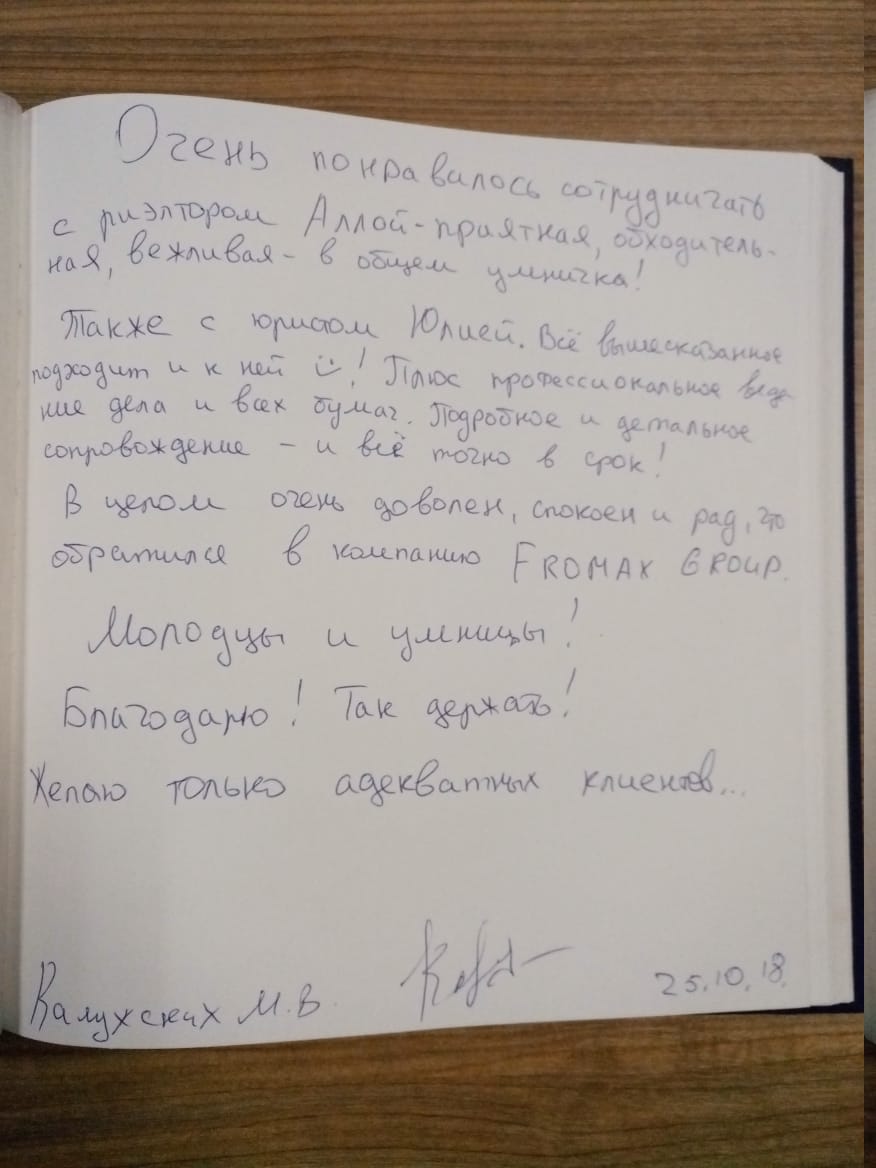 Очень понравилось сотрудничать
с риэлтором Аллой - приятная, обходитель-
ная, вежливая - в общем умничка!
Также с юристом Юлией. Всё вышесказанное
подходит и к ней ! Плюс профессиональное веде-
ние дела и всех бумаг. Подробное и детальное
сопровождение - и всё точно в срок!
В целом очень доволен, спокоен и рад, что
обратился в компанию FROMAX GROUP.
Молодцы и умницы!
Благодарю! Так держать!
Желаю только адекватных клиентов...
Калужских М.В.
25.10.18.